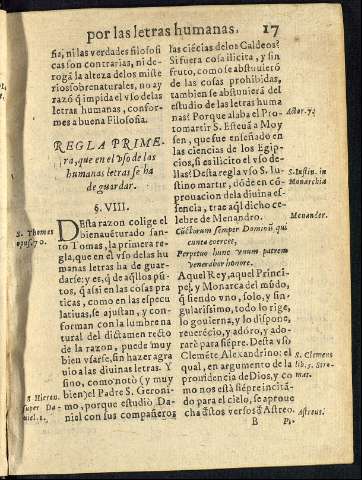 por las letras humanas. 17
sia, ni las verdades filosofi
cas son contrarias, ni de-
rogā la alteza delos miste
rios sobrenaturales, no ay
razō q̄ impida el vso delas
letras humanas, confor-
mes a buena Filosofia.
REGLA PRIME-
ra, que en el vso de las
humanas letras se ha
de guardar.
§. VIII.
Desta razon colige el
bienauēturado santo
Tomas, la primera re-
gla, que en el vso de las hu
manas letras ha de guar-
darse: y es, q̄ de aq̄llos pūs
tos, q̄ asi en las cosas pra
ticas, como en las especu
latiuas, se ajustan, y con-
forman con la lumbre na
tural del dictamen recto
de la razon, puede muy
bien vsarse, sin hazer agra
uio a las diuinas letras. Y
sino, como notò (y muy
bien) el Padre S. Geroni-
mo, porque estudiò Da-
niel con sus compañeros
S. Thomas
opus. 70.
S Hieron.
super Da-
niel. 1.
las ciēcias delos Caldeos?
Si fuera cosa ilicita, y sin
fruto, como se abstuuierō
de las cosas prohibidas,
tambien se abstuuierā del
estudio de las letras huma
nas? Porque alaba el Pro
tomartir S. Esteuā a Moy
sen, que fue enseñado en
las ciencias de los Egip-
cios, si es ilicito el vso de-
llas? Desta regla vsò S. Iu-
stino martir, dōde en cō-
prouacion dela diuina es-
sencia, trae aq̄l dicho ce-
lebre de Menandro.
Cūctorum semper Dominū qui
cunta coercet,
Perpetuo hunc vnum patrem
venerabor honore.
Aquel Rey, aquel Princi-
pe, y Monarca del mūdo,
q̄ siendo vno, solo, y sin-
gularissimo, todo lo rige,
lo gouierna, y lo dispone,
reuerēcio, y adoro, y ado-
rarè para siēpre. Desta vsò
Clemēte Alexandrino: el
qual, en argumento de la
prouidencia de Dios, y co
mo nos està siēpre incitā-
do para el cielo, se aproue
cha destos versos d̄ Astreo.
Actor. 7.
S. Iustin. in
Monarchia
Menander.
S. Clemens
lib. 5. Stro-
mat.
Astreus.
B